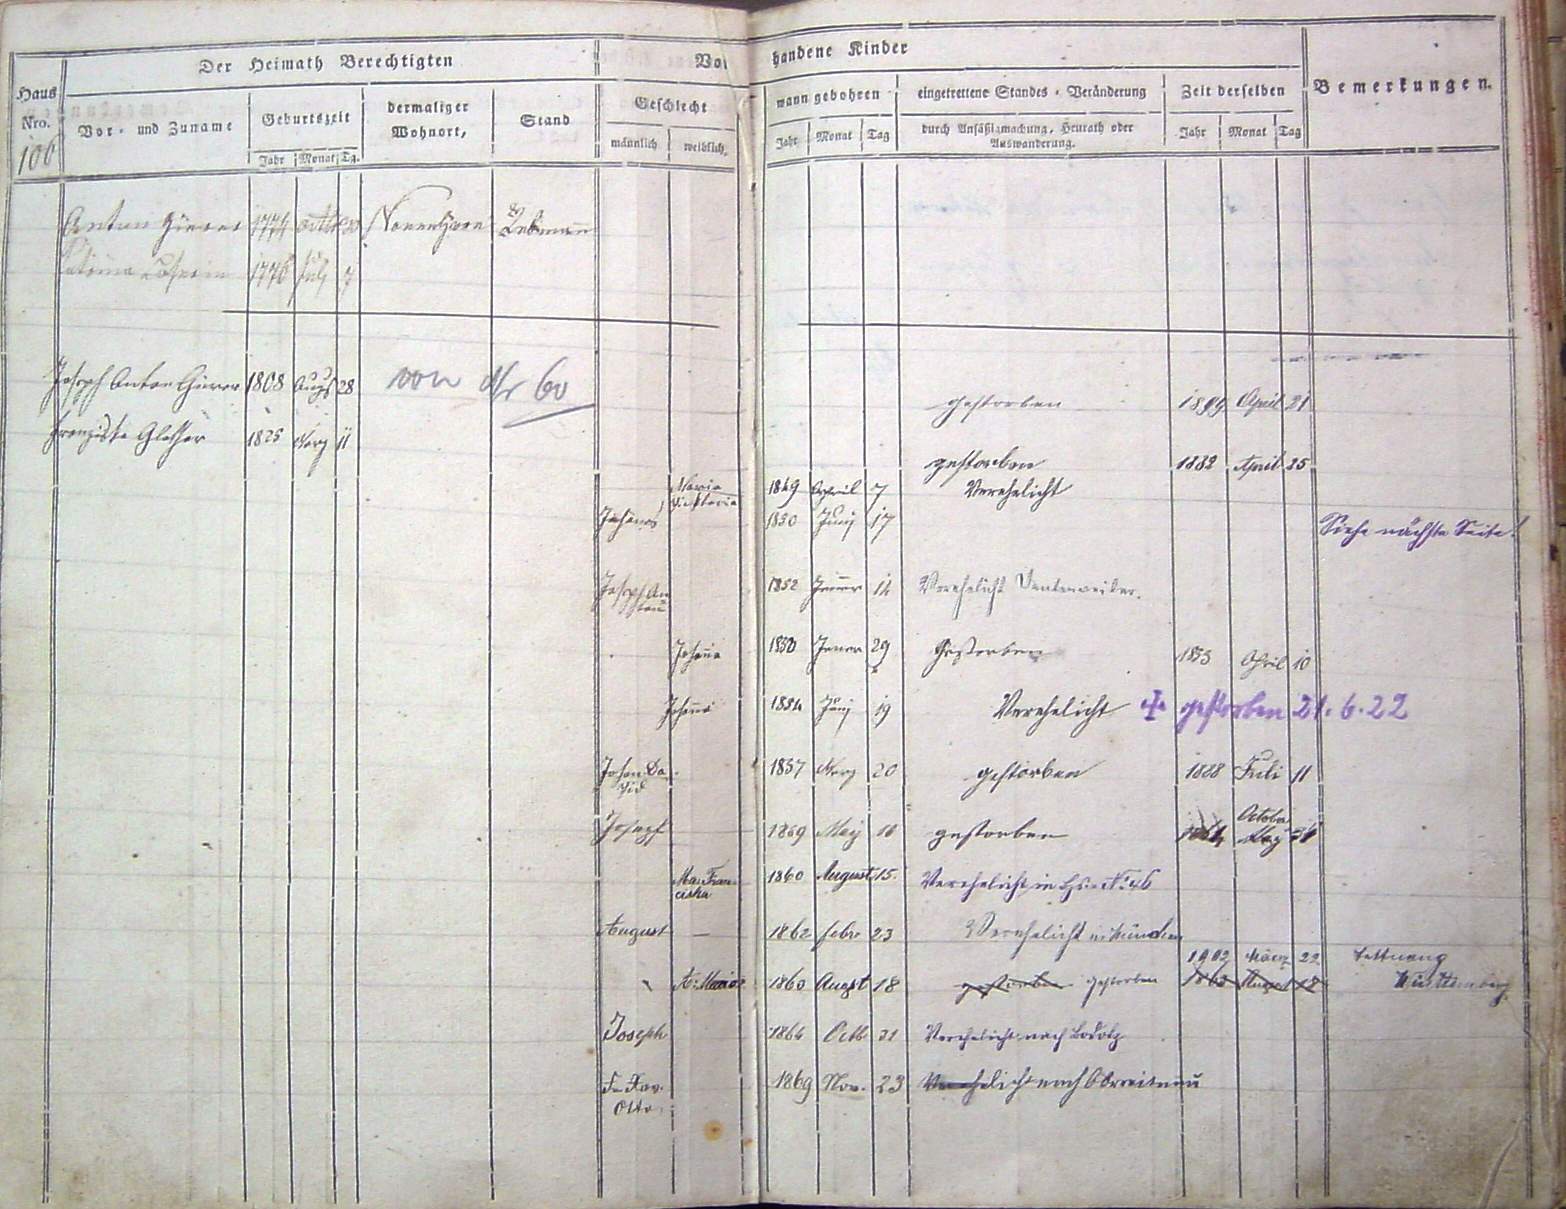 Der Heimath Berechtigten
Vorhandene Kinder
Haus Nro. 106
Vor- und Zuname
Geburtszeit
Jahr Monat Tg.
dermaliger Wohnort,
Stand
Geschlecht
männlich weiblich.
wann gebohren
Jahr Monat Tag
eingetrettene Standes-Veränderung
durch Ansäßigmachung, Heurath oder
Auswanderung.
Zeit derselben
Jahr Monat Tag
Bemerkungen.
Anton Hierer 1774 30 Nonnenhorn Rebmann
1776 July 7
Joseph Anton Hierer 1808 Augs 28 von Nr 60
gestorben 1889 April 21
Franziska 1825 Merz 11
gestorben 1882 April 25
Maria Viktoria 1849 April 7 Verehelicht
Johann 1850 Juny 17 Siehe nächste Seite!
Joseph Anton 1852 Jenner 14 Verehelicht
Johanna 1853 Jener 29 Gestorben 1853 April 10
Johanna 1854 Juny 19 Verehelicht gestorben 21.6.22
Johan David 1857 Merz 20 gestorben 1888 Juli 11
Joseph 1859 May 16 gestorben 1864 October
Ma. Franciska 1860 August 15. Verehelicht in Hs. No 46
August 1862 febr. 23 Verehelicht in München
1902 März 22 Tettnang
A: Maria 1860 August 18 gestorben gestorben 1863 August 18 Württemberg
Joseph 1864 Octb 31 Verehelicht nach Bodolz
Fr. Xav. 1869 Nov. 23 Verehelicht nach Oberreitnau
Otto